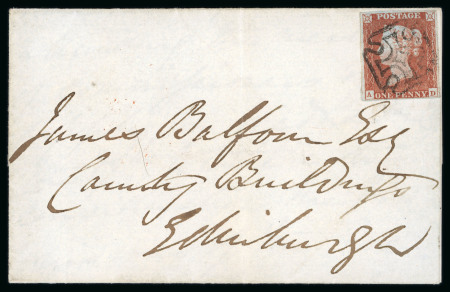 POSTAGE
A D
ONE PENNY
James Balfour Esq
County Buildings
Edinburgh